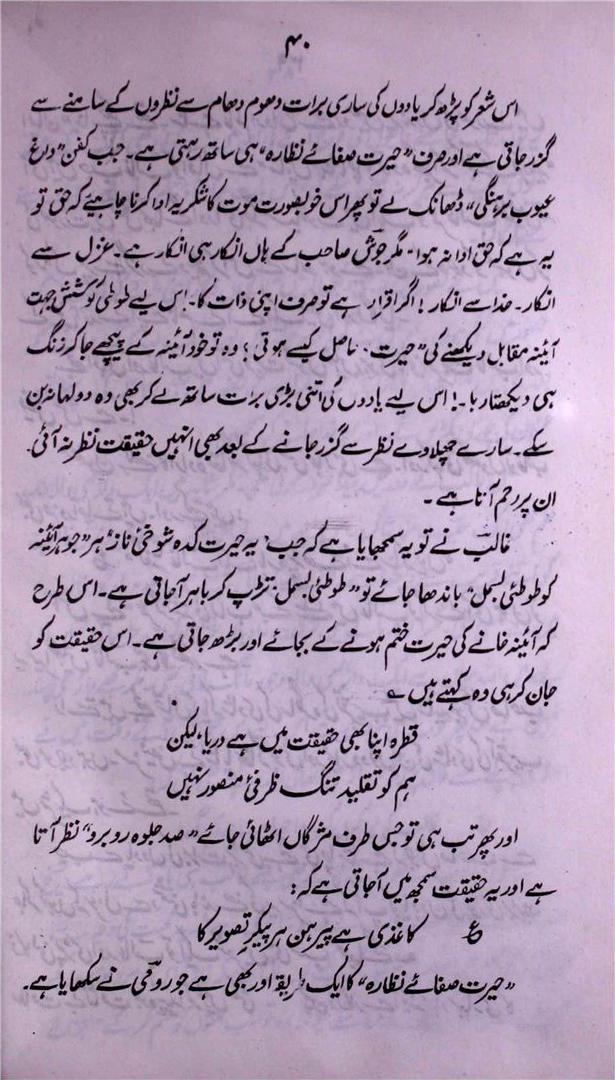 ۴۰
اس شعر کو پڑھ کر یادوں کی ساری برات دھوم دھام سے نظروں کے سامنے سے
گزر جاتی ہے اور صرف "حیرت صفائے نظارہ" ہی ساتھ رہتی ہے۔ جب کفن "داغ
عیوب برہنگی" ڈھانک لے تو پھر اس خوبصورت موت کا شکریہ ادا کرنا چاہیے کہ حق تو
یہ ہے کہ حق ادا نہ ہوا۔ مگر جوش صاحب کے ہاں انکار ہی انکار ہے۔ غزل سے
انکار۔ خدا سے انکار! اگر اقرار ہے تو صرف اپنی ذات کا۔ اس لیے طوطی کو شش جہت
آئینہ مقابل دیکھنے کی "حیرت" حاصل کیسے ہوتی؟ وہ تو خود آئینہ کے پیچھے جا کر زنگ
ہی دیکھتا رہا۔! اس لیے یادوں کی اتنی بڑی برات ساتھ لے کر بھی وہ دولہا نہ بن
سکے۔ سارے چھلاوے نظر سے گزر جانے کے بعد بھی انہیں حقیقت نظر نہ آئی۔
ان پر رحم آتا ہے۔
غالب نے تو یہ سمجھایا ہے کہ جب "یہ حیرت کدہ شوخیٔ ناز" ہر "جوہر آئینہ
کو طوطئی بسمل" باندھا جائے تو "طوطئی بسمل" تڑپ کر باہر آ جاتی ہے۔ اس طرح
کہ آئینہ خانے کی حیرت ختم ہونے کے بجائے اور بڑھ جاتی ہے۔ اس حقیقت کو
جان کر ہی وہ کہتے ہیں ؎
قطرہ اپنا بھی حقیقت میں ہے دریا، لیکن
ہم کو تقلید تنک ظرفیٔ منصور نہیں
اور پھر تب ہی تو جس طرف مژگاں اٹھائی جائے "صد جلوہ روبرو" نظر آتا
ہے اور یہ حقیقت سمجھ میں آ جاتی ہے کہ:
ع کاغذی ہے پیرہن ہر پیکرِ تصویر کا
"حیرت صفائے نظارہ" کا ایک طریقہ اور بھی ہے جو رومی نے سکھایا ہے۔